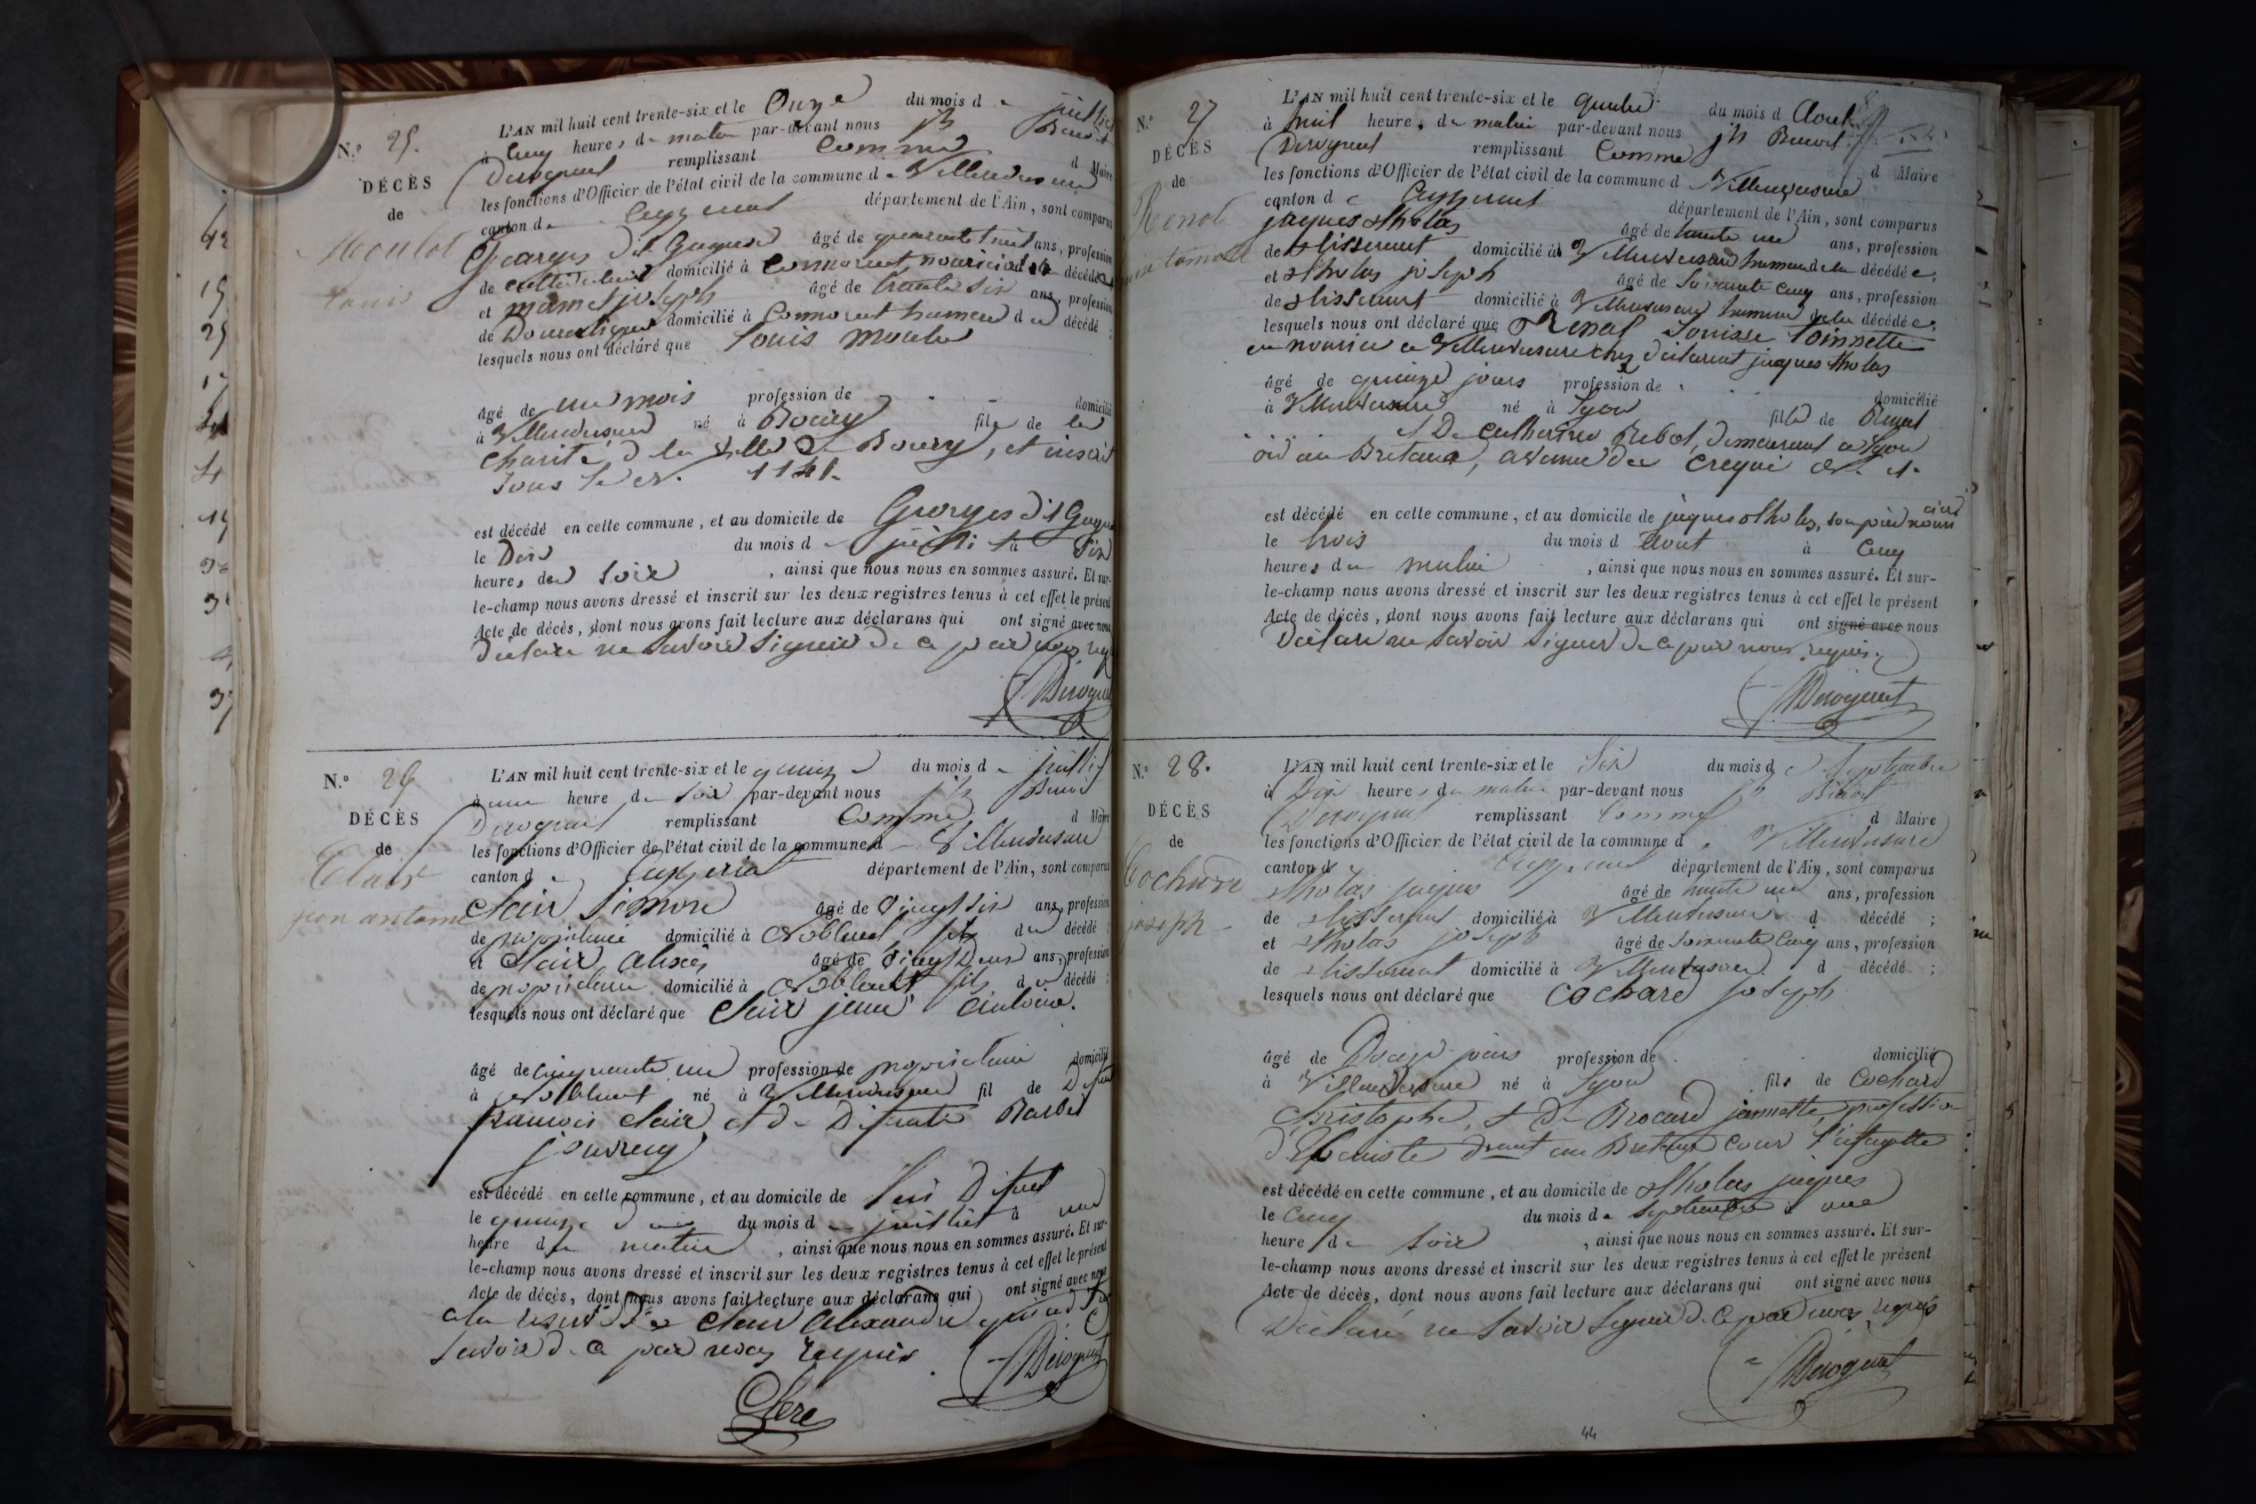 N.º 25.
DÉCÈS
de
Moulot
Louis
L'AN mil huit cent trente-six et le Onze du mois de juillet
à Cinq heures du matin par-devant nous jh Benoit
Derognat remplissant Comme d Maire
les fonctions d'Officier de l'état civil de la commune de Villereversure
canton de Ceyzeriat département de l'Ain, sont comparus
Georges dit Guguse âgé de quarante huit ans, profession
de cultivateur domicilié à nouricier décédé
et mamet joseph âgé de trente six ans, profession
de Domestique domicilié à du décédé ;
lesquels nous ont déclaré que Louis Moulot
âgé de un mois profession de domicilié
à Villereversure né à Bourg fils de la
charité de la ville de Bourg, et inscrit
sous le N. 1141.
est décédé en cette commune, et au domicile de Georges dit Guguse
le Dix du mois de juillet à Six
heures du soir, ainsi que nous nous en sommes assuré. Et sur-
le-champ nous avons dressé et inscrit sur les deux registres tenus à cet effet le présent
Acte de décès, dont nous avons fait lecture aux déclarans qui ont signé avec nous
déclaré ne savoir signer de ce par nous req
Derognat
N.º 26
DÉCÈS
de
Clair
jean antoine
L'AN mil huit cent trente-six et le quinze du mois de juillet
à une heure du soir par-devant nous jh Benoit
Derognat remplissant Comme d Maire
les fonctions d'Officier de l'état civil de la commune de Villereversure
canton de Ceyzeriat département de l'Ain, sont comparus
Clair Simon âgé de vingt six ans, profession
de propriétaire domicilié à Noblens fils du décédé ;
et Clair Alexis âgé de vingt Deux ans, profession
de propriétaire domicilié à Noblens fils du décédé ;
lesquels nous ont déclaré que Clair jean Antoine.
âgé de cinquante un profession de propriétaire domicilié
à Noblens né à Villereversure fil de Défunt
francois Clair et de Défunte
est décédé en cette commune, et au domicile de lui Défunt
le quinze du mois de juillet à une
heure du matin, ainsi que nous nous en sommes assuré. Et sur-
le-champ nous avons dressé et inscrit sur les deux registres tenus à cet effet le présent
Acte de décès, dont nous avons fait lecture aux déclarans qui ont signé avec nous
Clair
savoir de ce par nous requis.
Derognat
N.º 27
DÉCÈS
de
L'AN mil huit cent trente-six et le quatre du mois d Aout
à huit heures du matin par-devant nous jh Benoit
Derognat remplissant Comme d Maire
les fonctions d'Officier de l'état civil de la commune d Villereversure
canton de Ceyzeriat département de l'Ain, sont comparus
jaques Tholas âgé de trente un ans, profession
de tisserant domicilié à Villereversure de la décédée ;
et Tholas joseph âgé de soixante cinq ans, profession
de tisserant domicilié à Villereversure de la décédée ;
lesquels nous ont déclaré que Renal Louisse Toinnette
en nourice a Villereversure chez déclarant jaques Tholas
âgé de quinze jours profession de domicilié
à Villereversure né à Lyon fille de
et De Catherine Rebot, demeurant à Lyon
est décédé en cette commune, et au domicile de jaques Tholas, son père nouricier
le trois du mois d Aout à Cinq
heures du matin, ainsi que nous nous en sommes assuré. Et sur-
le-champ nous avons dressé et inscrit sur les deux registres tenus à cet effet le présent
Acte de décès, dont nous avons fait lecture aux déclarans qui ont signé avec nous
déclaré ne savoir signer de ce par nous requis.
Derognat
N.º 28.
DÉCÈS
de
Cochard
joseph
L'AN mil huit cent trente-six et le Six du mois de Septembre
à Dix heures du matin par-devant nous jh Benoit
Derognat remplissant Comme d Maire
les fonctions d'Officier de l'état civil de la commune d Villereversure
canton de Ceyzeriat département de l'Ain, sont comparus
Tholas jaques âgé de trente un ans, profession
de tisserant domicilié à Villereversure d décédé ;
et Tholas joseph âgé de soixante Cinq ans, profession
de tisserant domicilié à Villereversure d décédé ;
lesquels nous ont déclaré que Cochard joseph
âgé de Douze jours profession de domicilié
à Villereversure né à Lyon fils de Cochard
Christophe, et De Brocard jannette, profession
est décédé en cette commune, et au domicile de Tholas jaques
le Cinq du mois de Septembre à une
heure du soir, ainsi que nous nous en sommes assuré. Et sur-
le-champ nous avons dressé et inscrit sur les deux registres tenus à cet effet le présent
Acte de décès, dont nous avons fait lecture aux déclarans qui ont signé avec nous
Déclaré ne savoir signer de ce par nous requis
Derognat
44